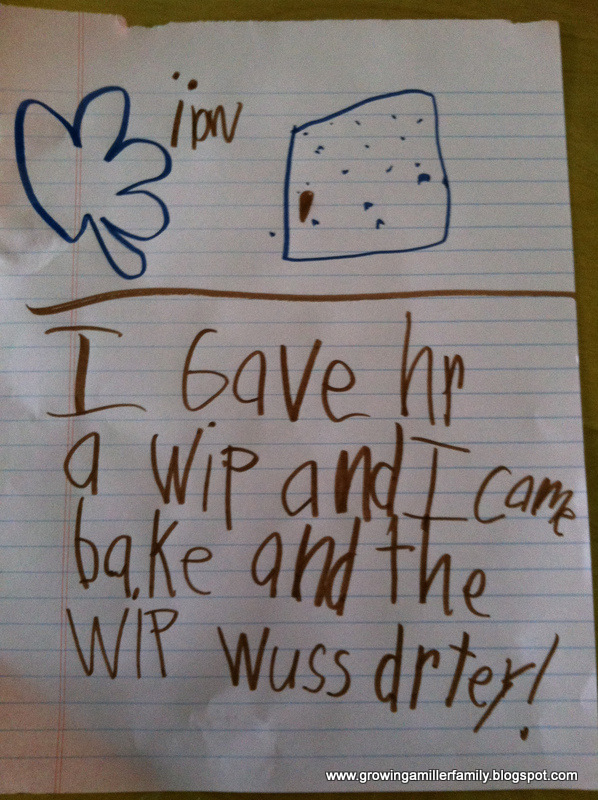 I Gave hr
a Wip and I came
bake and the
WIP Wuss drtey!
www.growingamillerfamily.blogspot.com